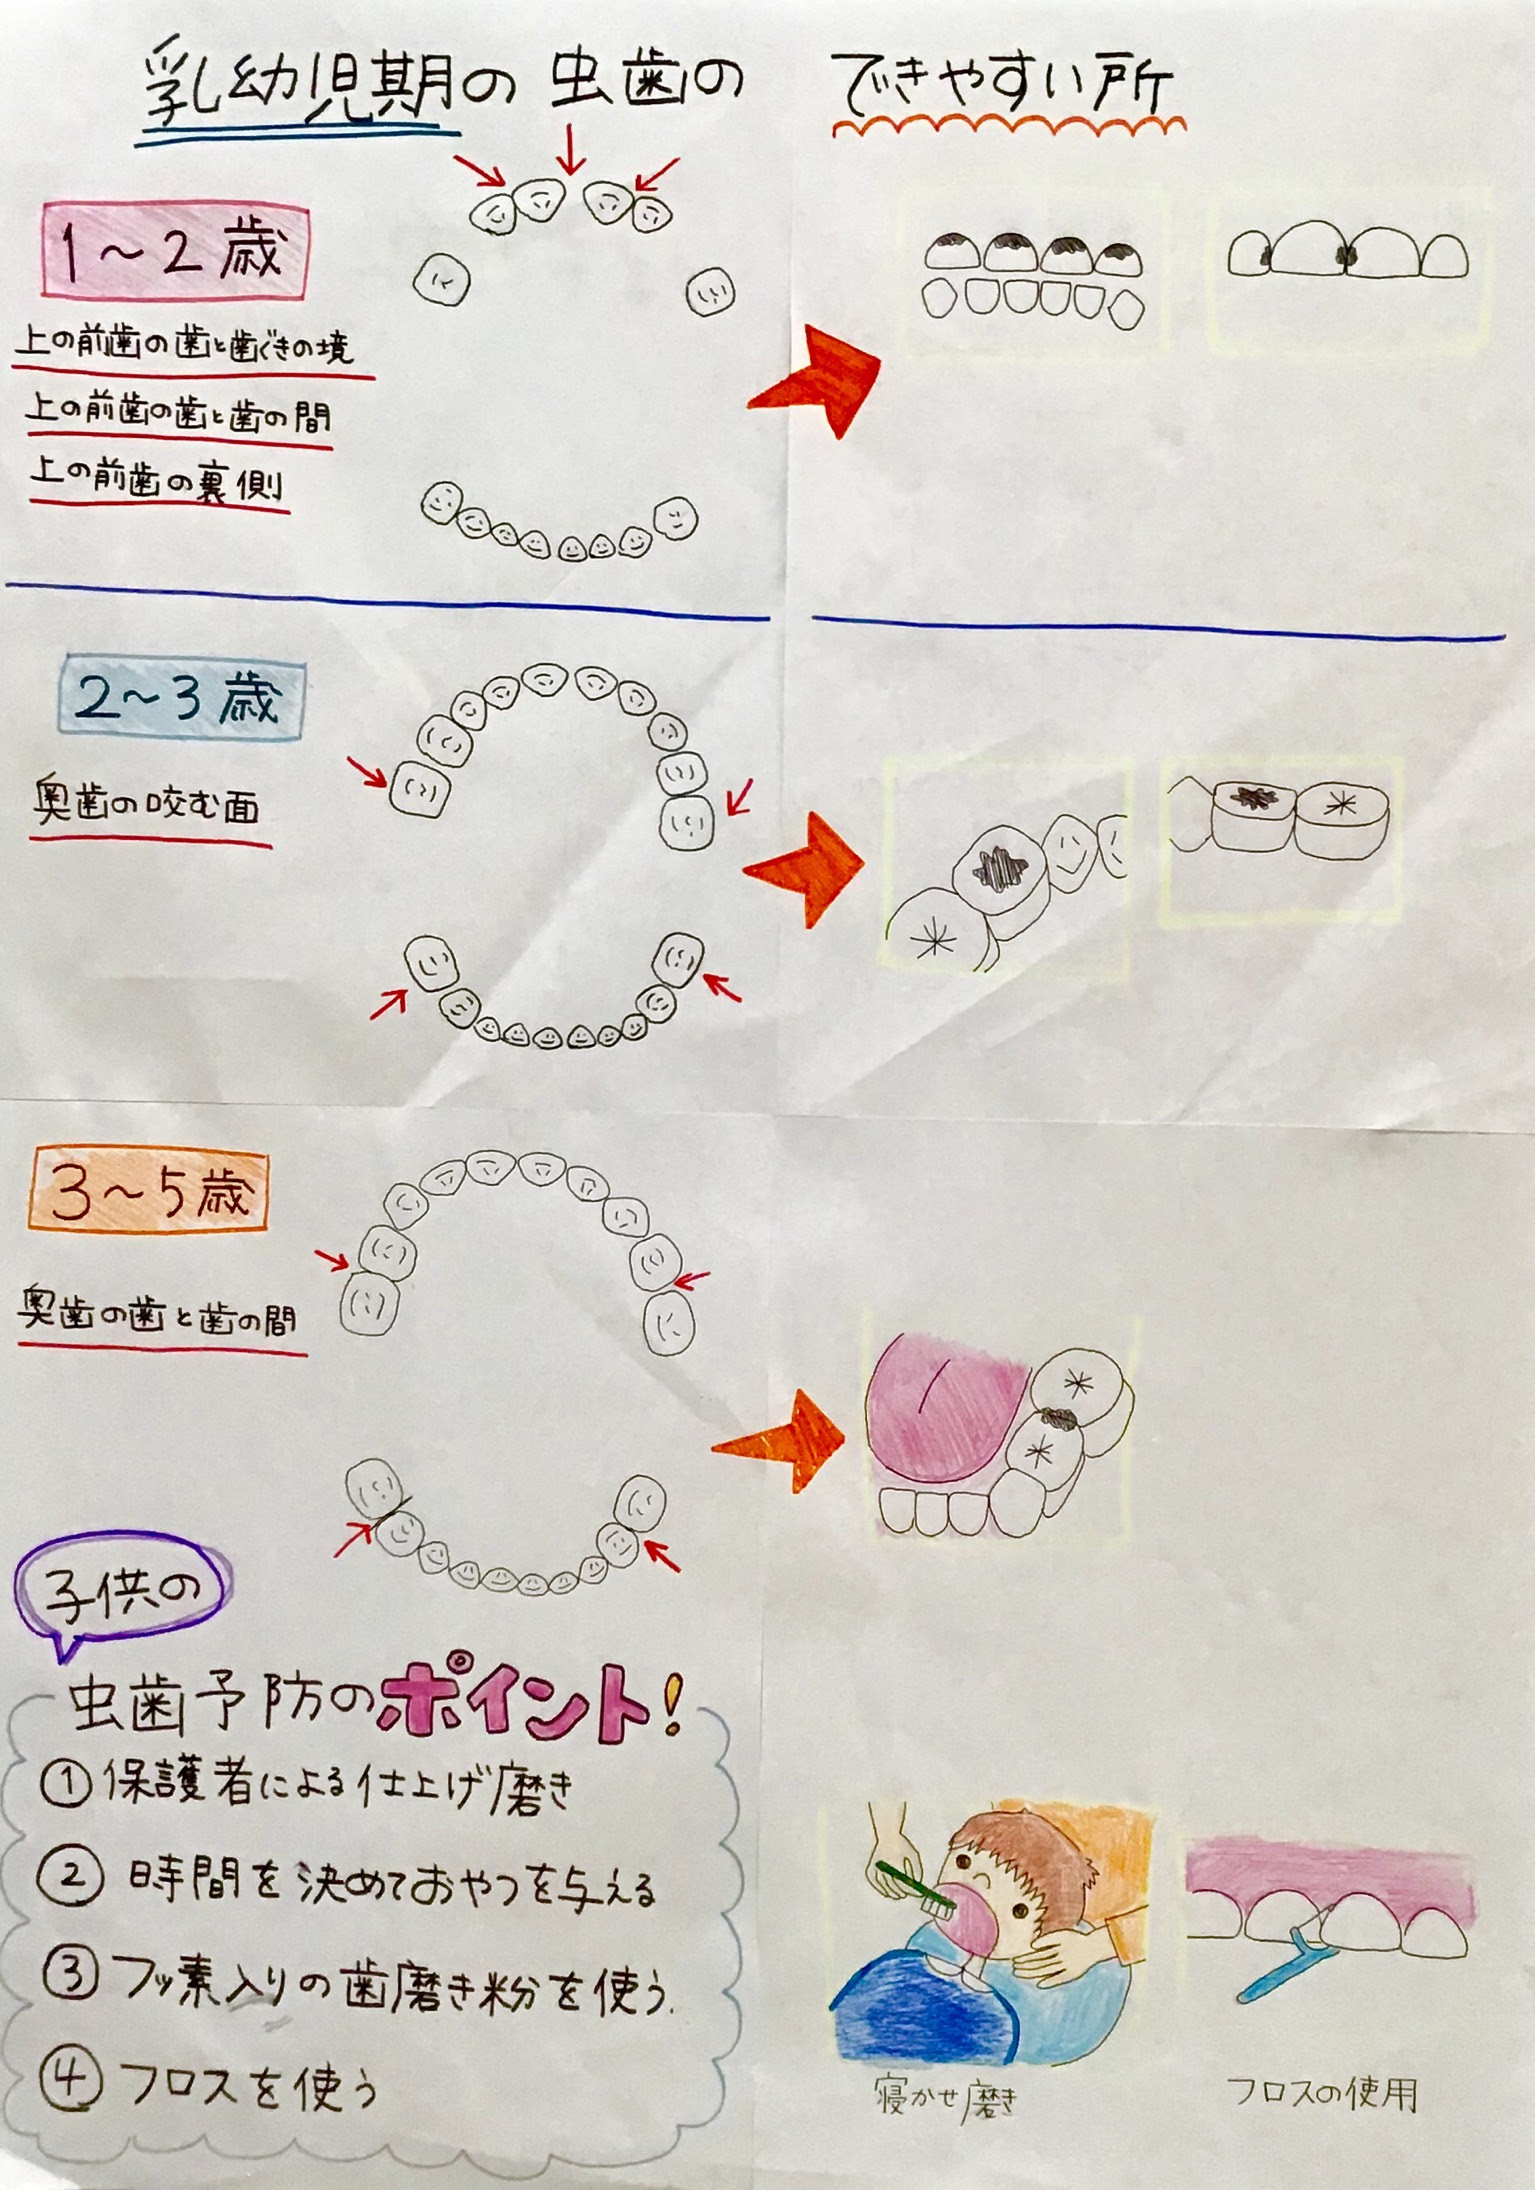 乳幼児期の虫歯の できやすい所
1～2歳
上の前歯の歯と歯ぐきの境
上の前歯の歯と歯の間
上の前歯の裏側
2～3歳
奥歯の咬む面
3～5歳
奥歯の歯と歯の間
子供の
虫歯予防のポイント!
①保護者による仕上げ磨き
②時間を決めておやつを与える
③フッ素入りの歯磨き粉を使う.
④フロスを使う
寝かせ磨き
フロスの使用